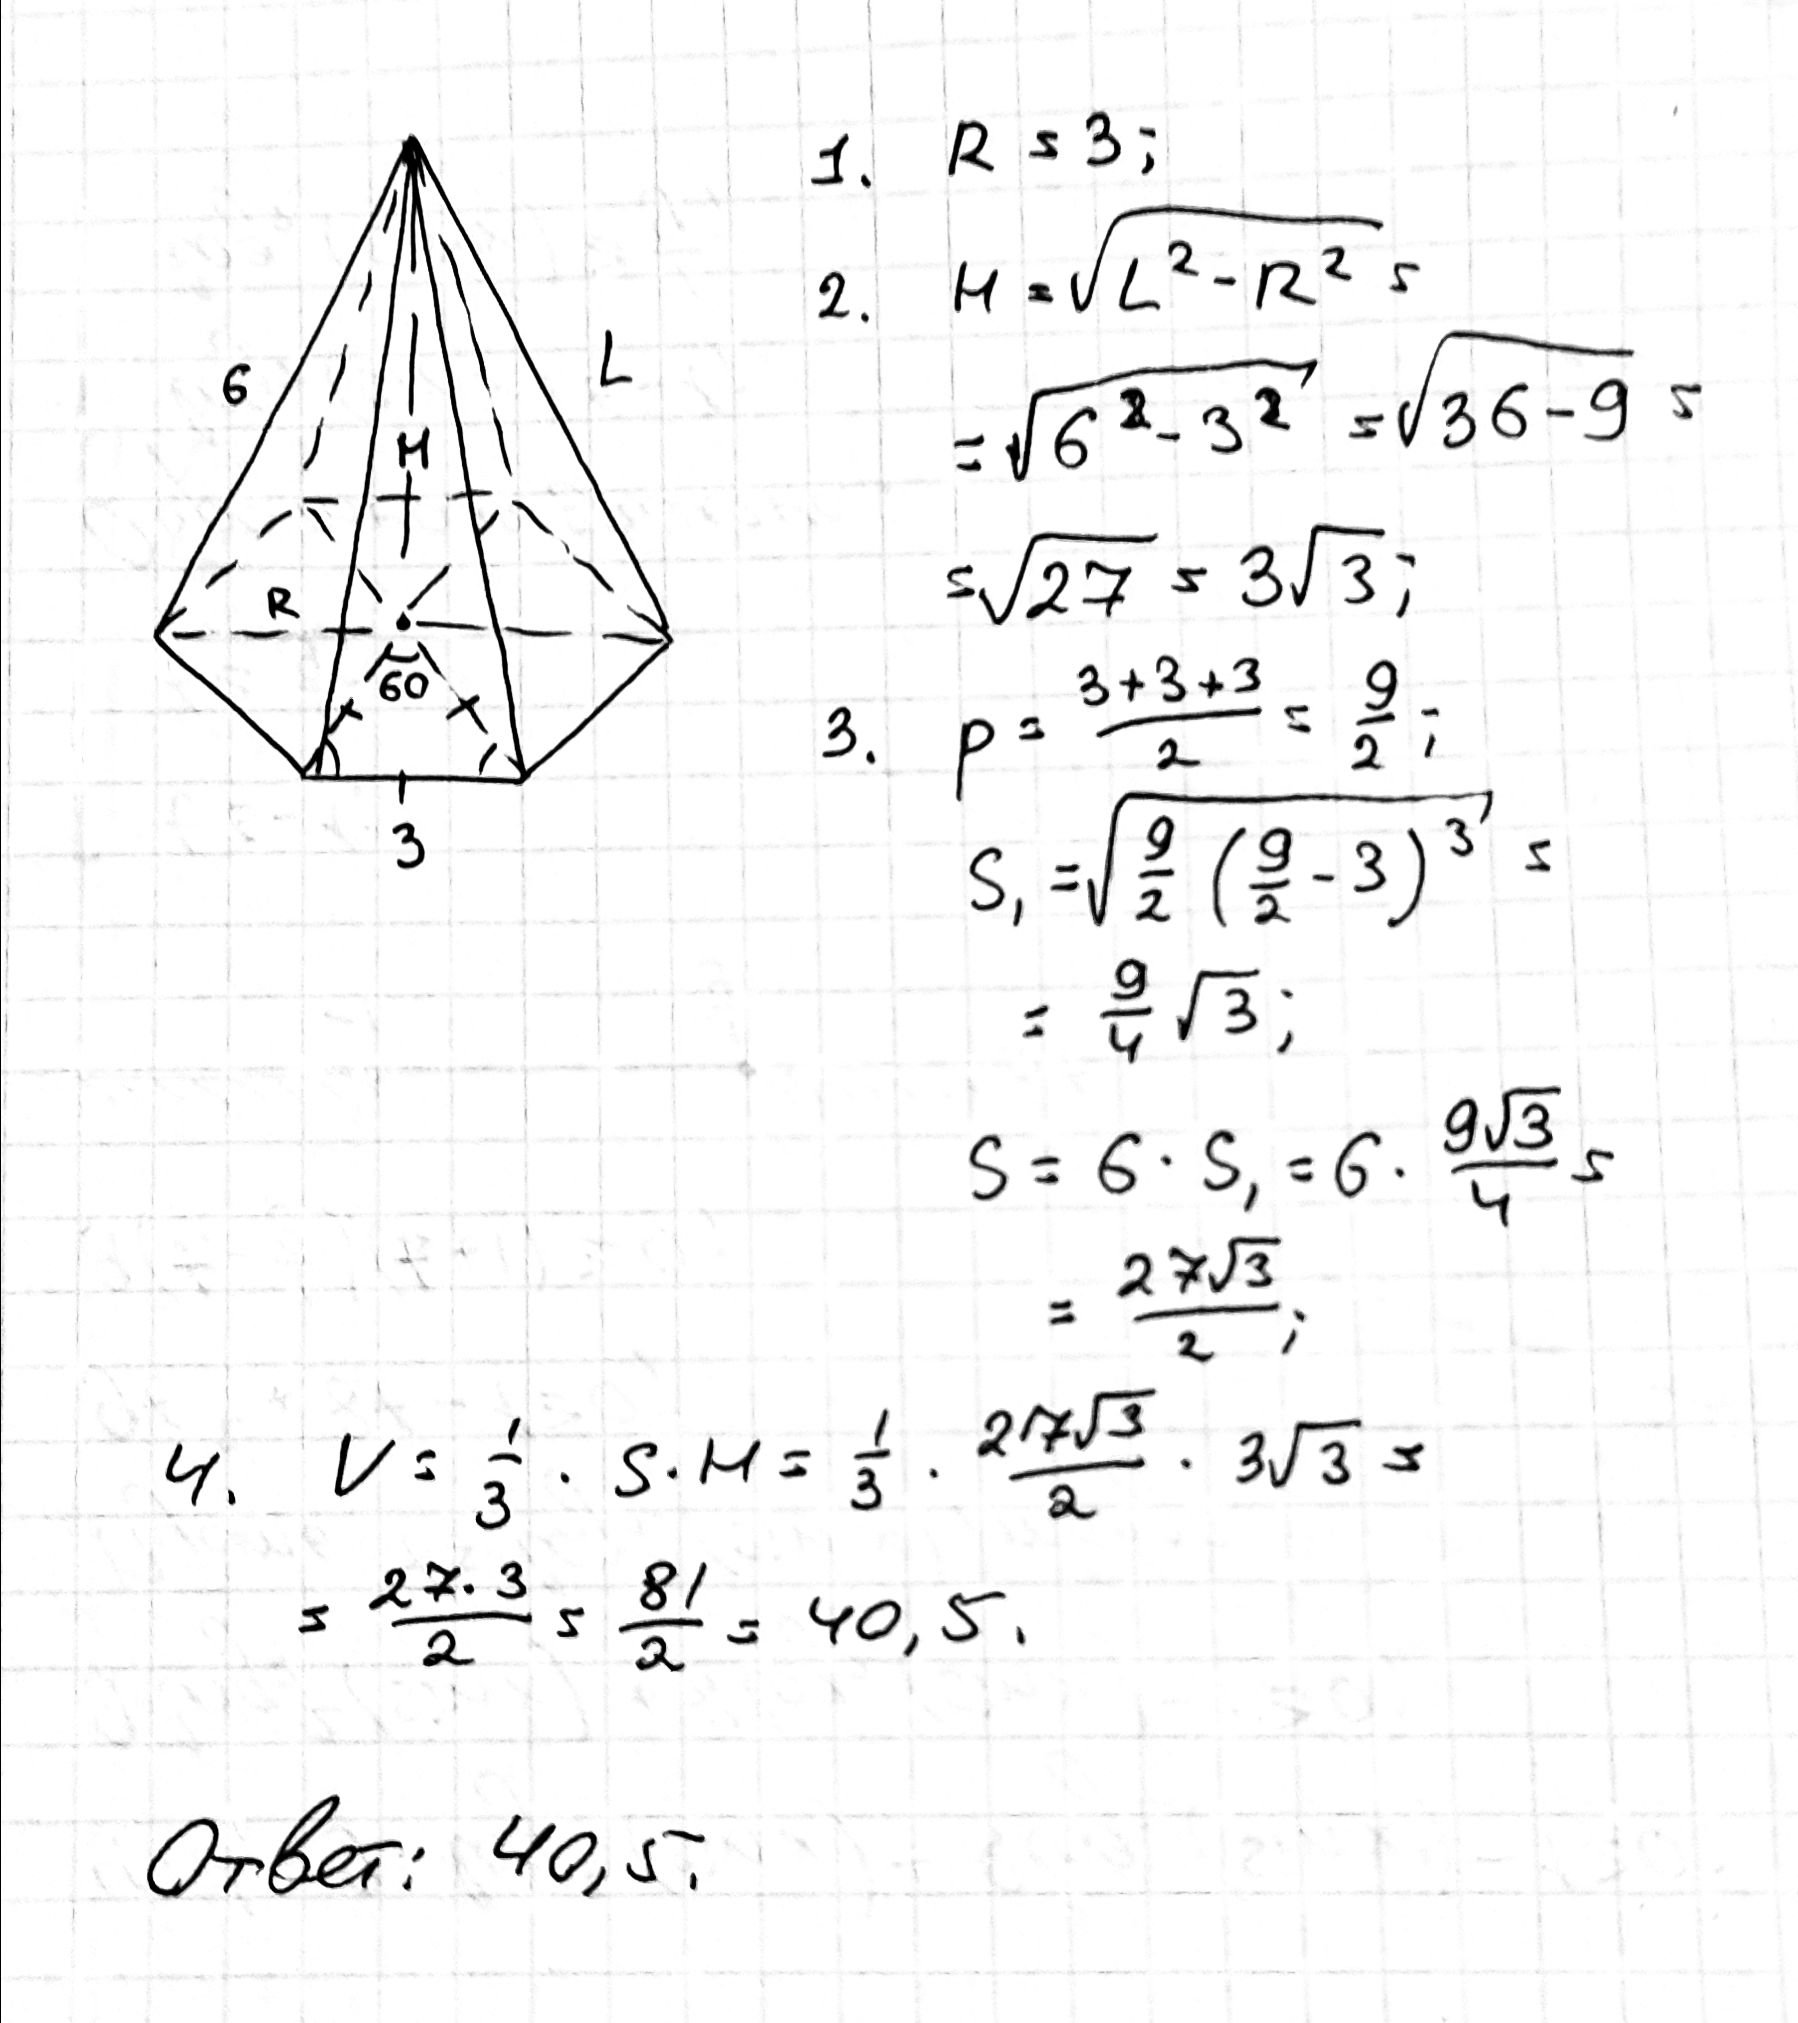 1. R = 3;
2. H = √(L² - R²) =
= √(6² - 3²) = √(36 - 9) =
= √27 = 3√3;
3. p = (3+3+3)/2 = 9/2;
S₁ = √(9/2 (9/2 - 3)³) =
= 9/4 √3;
S = 6 · S₁ = 6 · 9√3/4 =
= 27√3/2;
4. V = 1/3 · S · H = 1/3 · 27√3/2 · 3√3 =
= 27·3/2 = 81/2 = 40,5.
Ответ: 40,5.
6
L
H
R
60
3